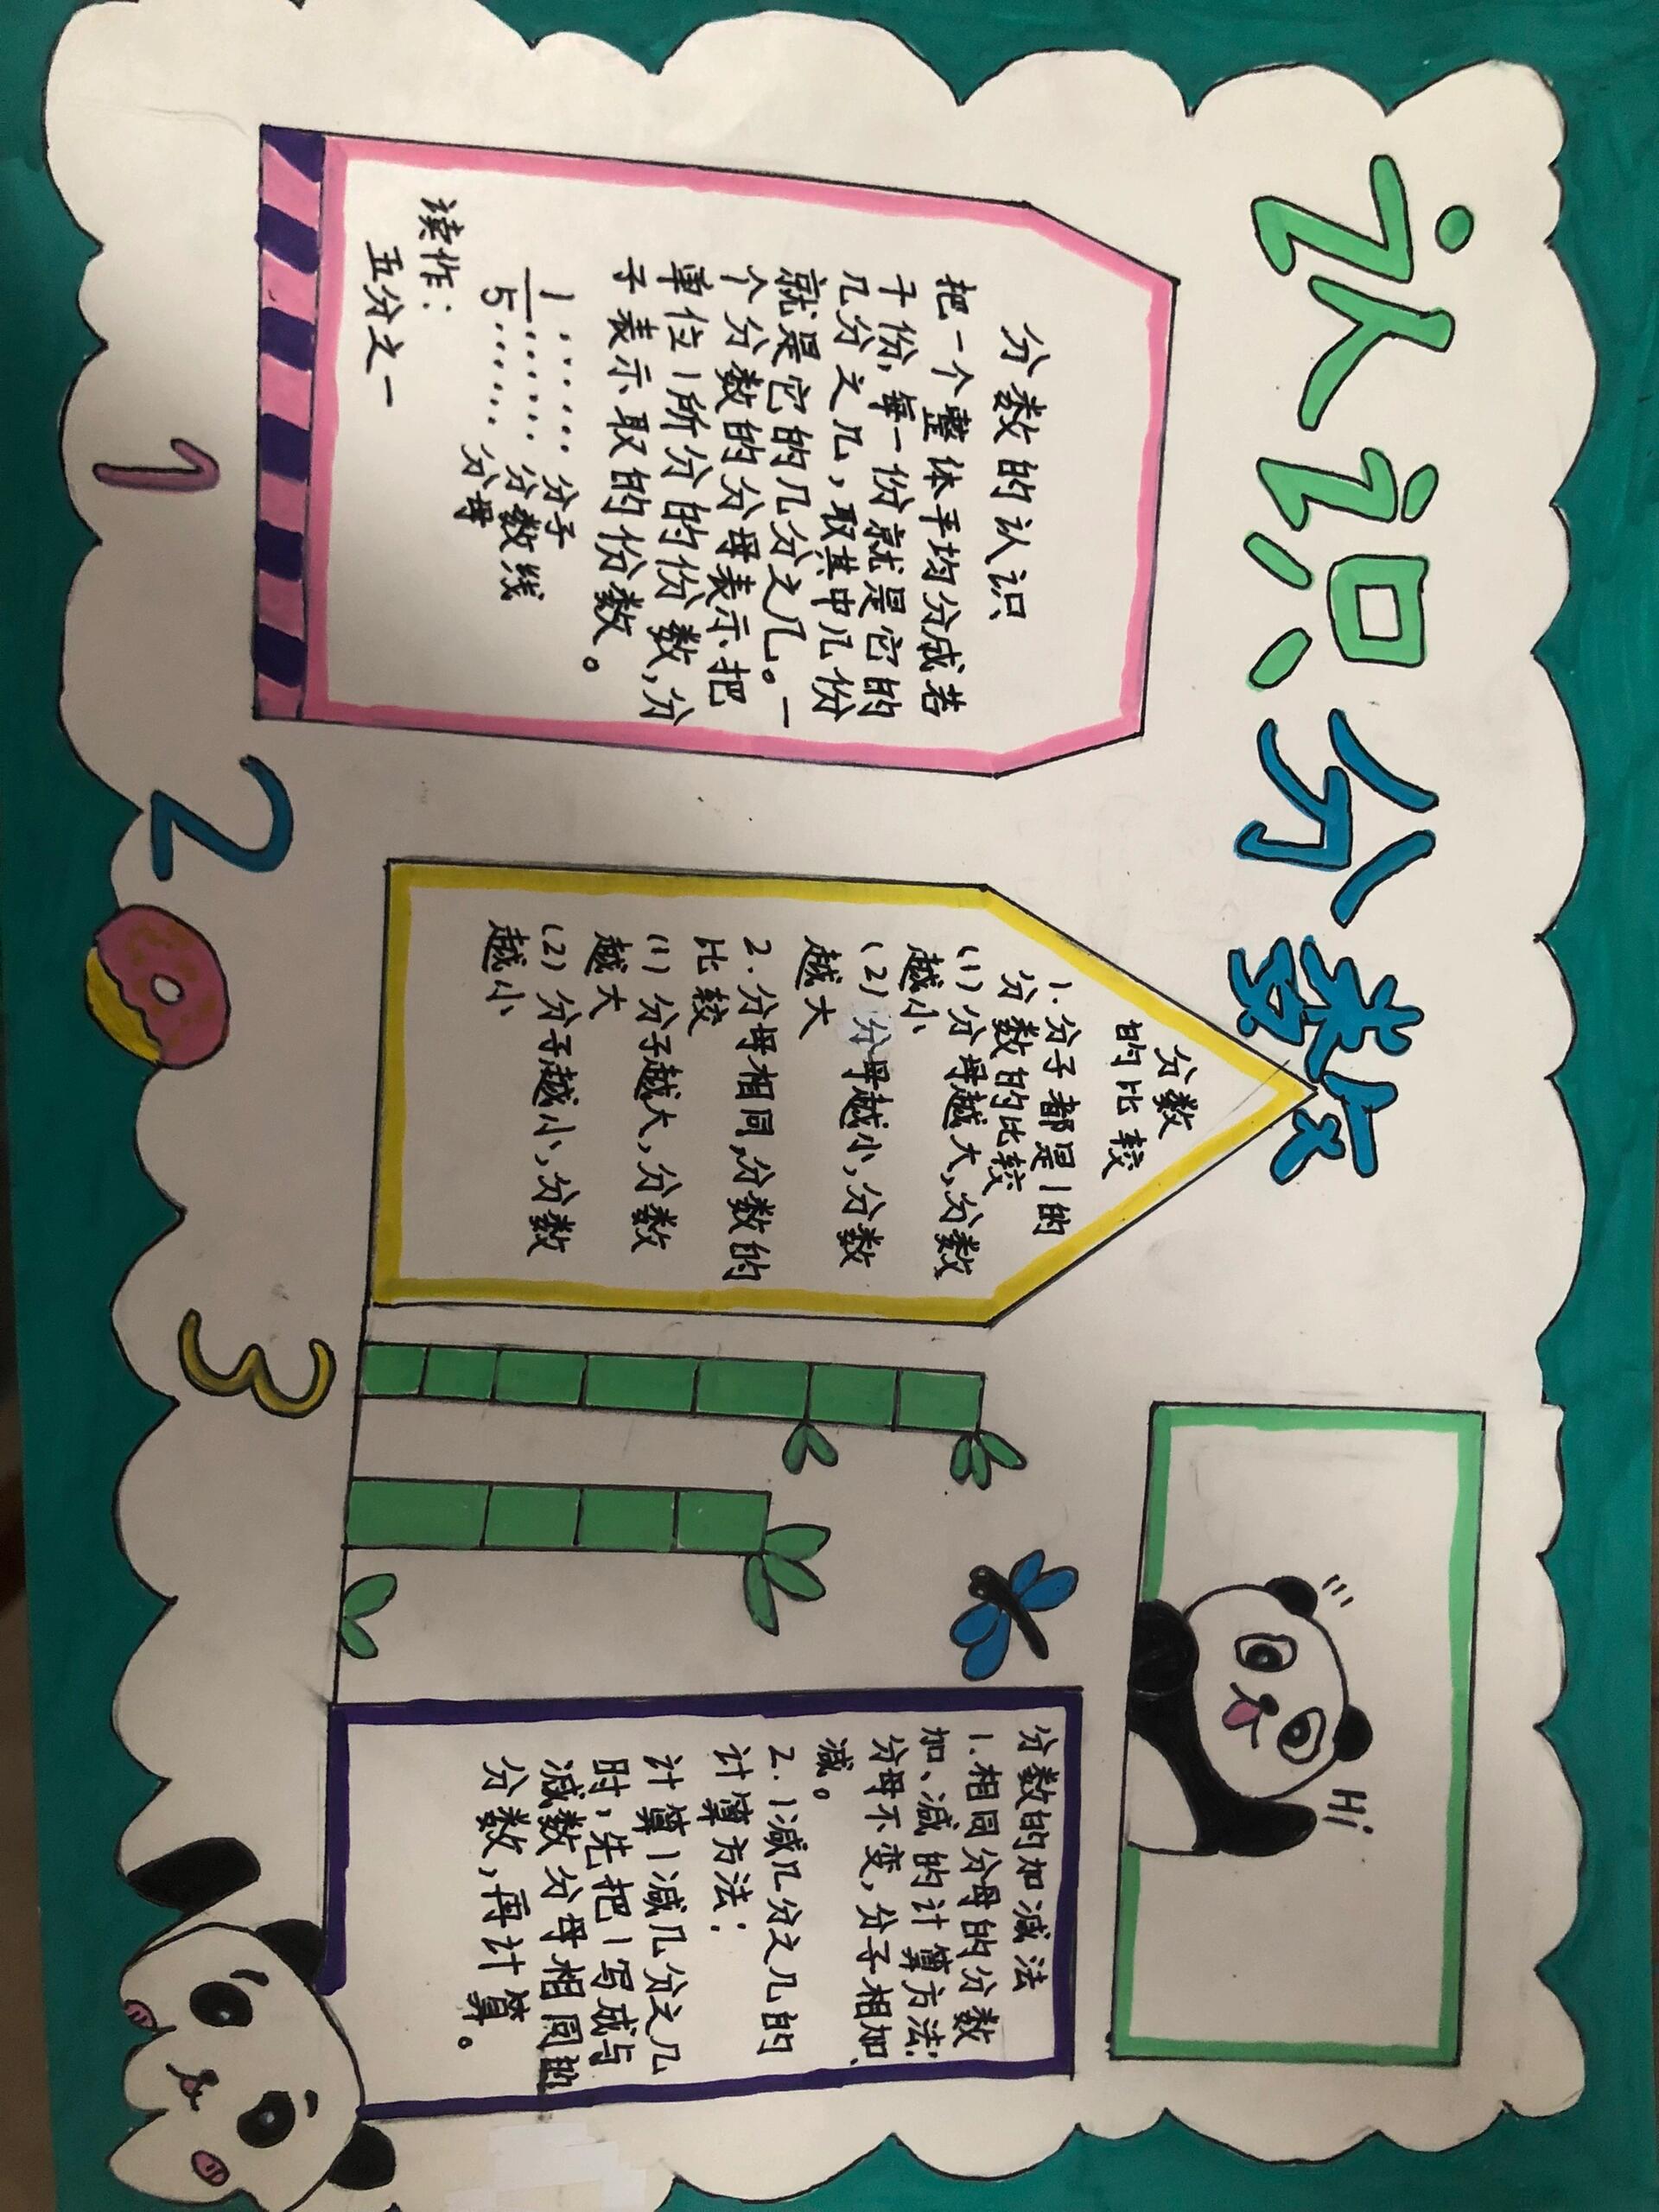 认识分数
分数的认识
把一个整体平均分成若
干份,每一份就是它的
几分之几,取其中几份
就是它的几分之几。一
个分数的分母表示把
单位1所分的份数,分
子表示取的份数。
1……分子
—……分数线
5……分母
读作:
五分之一
分数
的比较
1.分子都是1的
分数的比较
(1)分母越大,分数
越小
(2)分母越小,分数
越大
2.分母相同,分数的
比较
(1)分子越大,分数
越大
(2)分子越小,分数
越小
Hi
分数的加减法
1.相同分母的分数
加、减的计算方法:
分母不变,分子相加、
减。
2.1减几分之几的
计算方法:
计算1减几分之几
时,先把1写成与
减数分母相同的
分数,再计算。
1
2
3